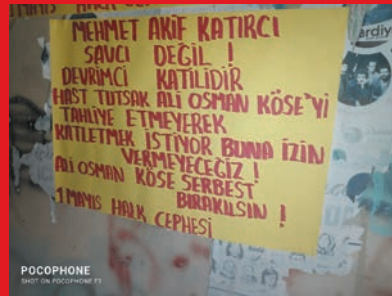 1 MAYIS HALK CE
ardiy
MEHMET AKİF KATIRCI
SAVCI DEĞİL !
DEVRİMCİ KATİLİDİR
HAST TUTSAK ALİ OSMAN KÖSE'Yİ
TAHLİYE ETMEYEREK
KATLETMEK İSTİYOR BUNA İZİN
VERMEYECEĞİZ !
ALİ OSMAN KÖSE SERBEST
BIRAKILSIN !
1 MAYIS HALK CEPHESİ
POCOPHONE
SHOT ON POCOPHONE F1